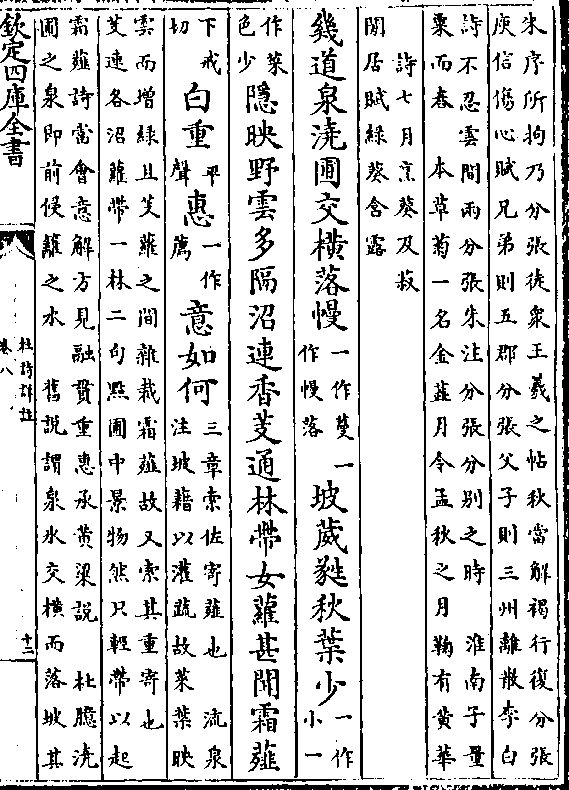 朱序所拘乃分張徒衆王羲之帖秋當解褐行復分張
庾信傷心賦兄弟則五郡分張父子則三州離散李白
詩不忍雲間兩分張朱注分張分別之時　淮南子量
粟而舂　本草菊一名金蕋月令孟秋之月鞠有黄華
詩七月烹葵及菽
閒居賦緑葵含露
幾道泉澆圃交横落慢
一作蔓一
作幔落
坡葳蕤秋葉少
一作
小一
作葉
色少
隱映野雲多隔沼連香芰通林帶女蘿甚聞霜薤
下戒
切
白重
平
聲
惠
一作
薦
意如何
三章索佐寄薤也　流泉
注坡藉以灌蔬故菜葉映
雲而增緑且芰蘿之間雜栽霜薤故又索其重寄也
芰連各沼蘿帶一林二句點圃中景物然只輕帶以起
霜薤詩當會意解方見融貫重惠承黄梁說　杜臆澆
圃之泉即前侵籬之水　舊說謂泉水交横而落坡其
欽定四庫全書
杜詩詳註
卷八
十三